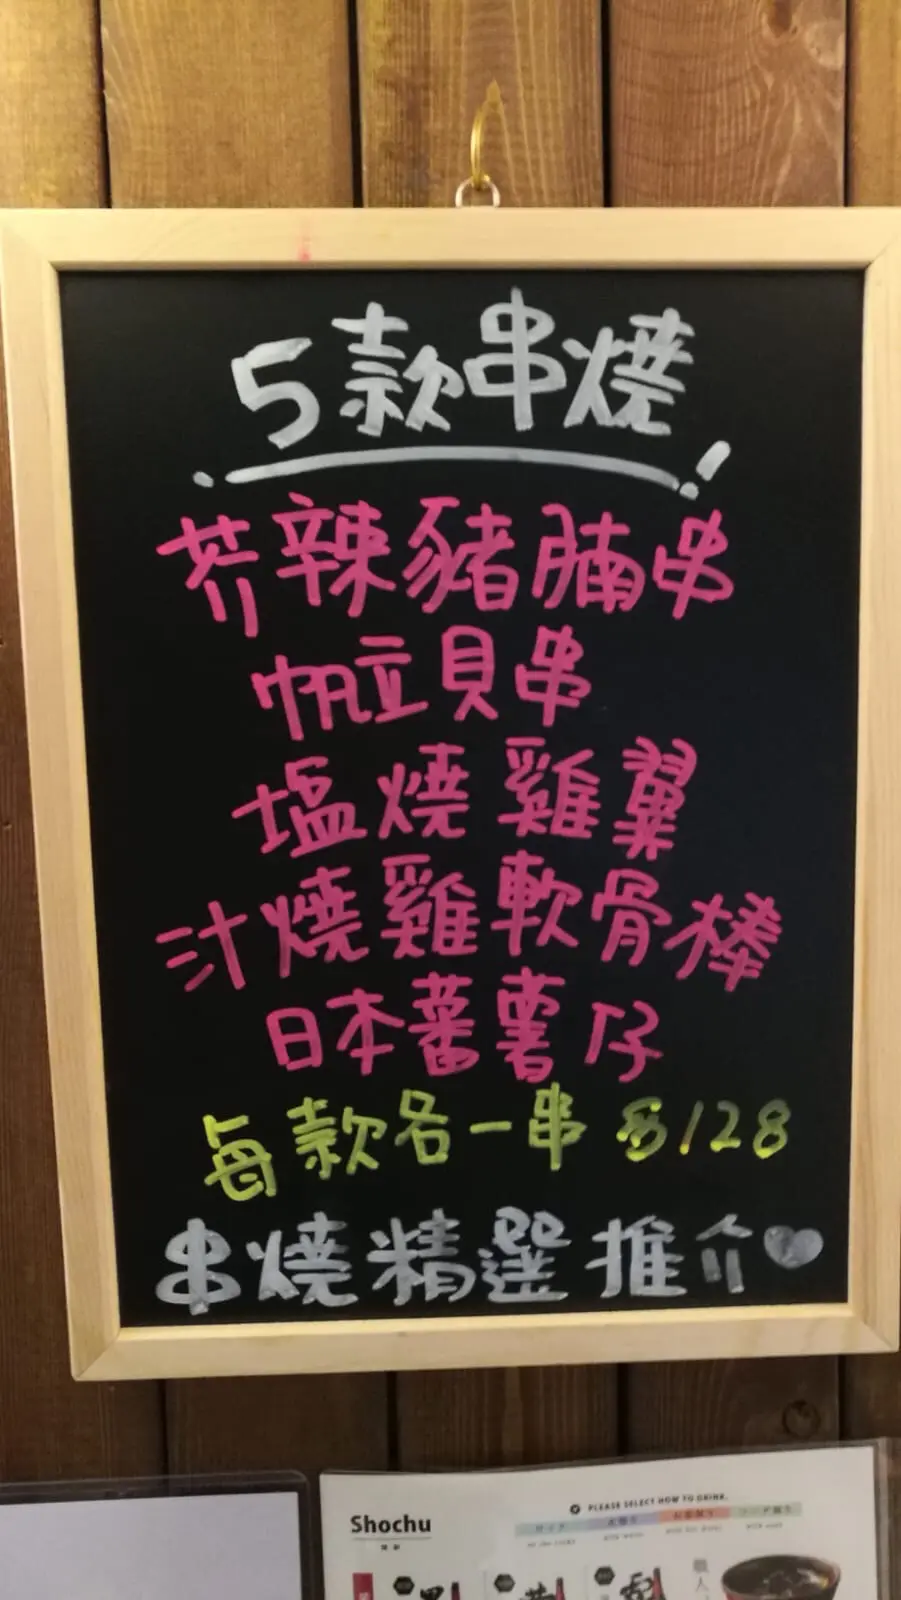 5款串燒!
芥辣豬腩串
帆立貝串
塩燒雞翼
汁燒雞軟骨棒
日本蕃薯仔
每款各一串 $128
串燒精選推介
PLEASE SELECT HOW TO DRINK.
Shochu